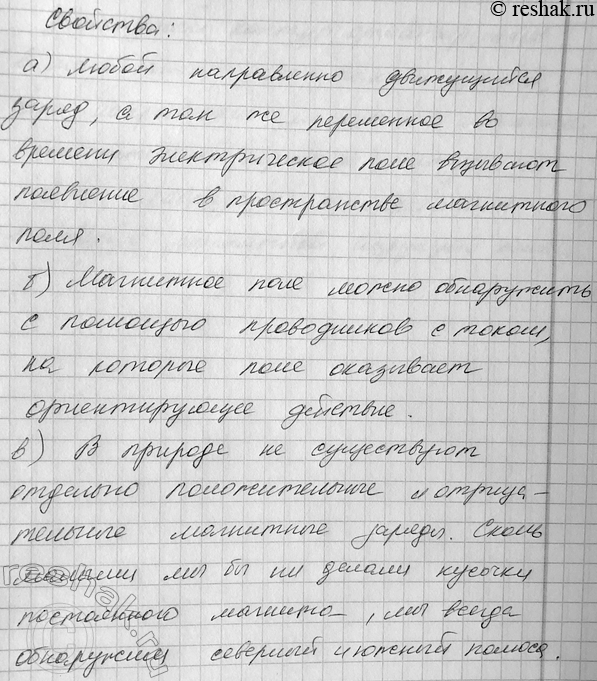 © reshak.ru
Свойства:
а) любой направленно движущийся
заряд, а так же переменное во
времени электрическое поле вызывают
появление в пространстве магнитного
поля.
б) Магнитное поле можно обнаружить
с помощью проводников с током,
на которые поле оказывает
ориентирующее действие.
в) В природе не существуют
отдельно положительные и отрица-
тельные магнитные заряды. Сколь
малыми мы бы ни делали кусочки
постоянного магнита, мы всегда
обнаружим северный и южный полюса.
reshak.ru